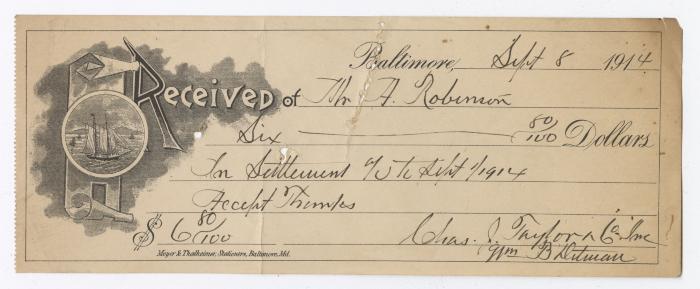 Baltimore, Sept 8 1914
Received of Mr A. Robinson
Six 80/100 Dollars
In Settlement a/c to Sept 1/1914
Accept Thanks
$ 6 80/100
Chas. J. Taylor & Co. Inc
Wm B Ditman
Meyer & Thalheimer, Stationers, Baltimore, Md.